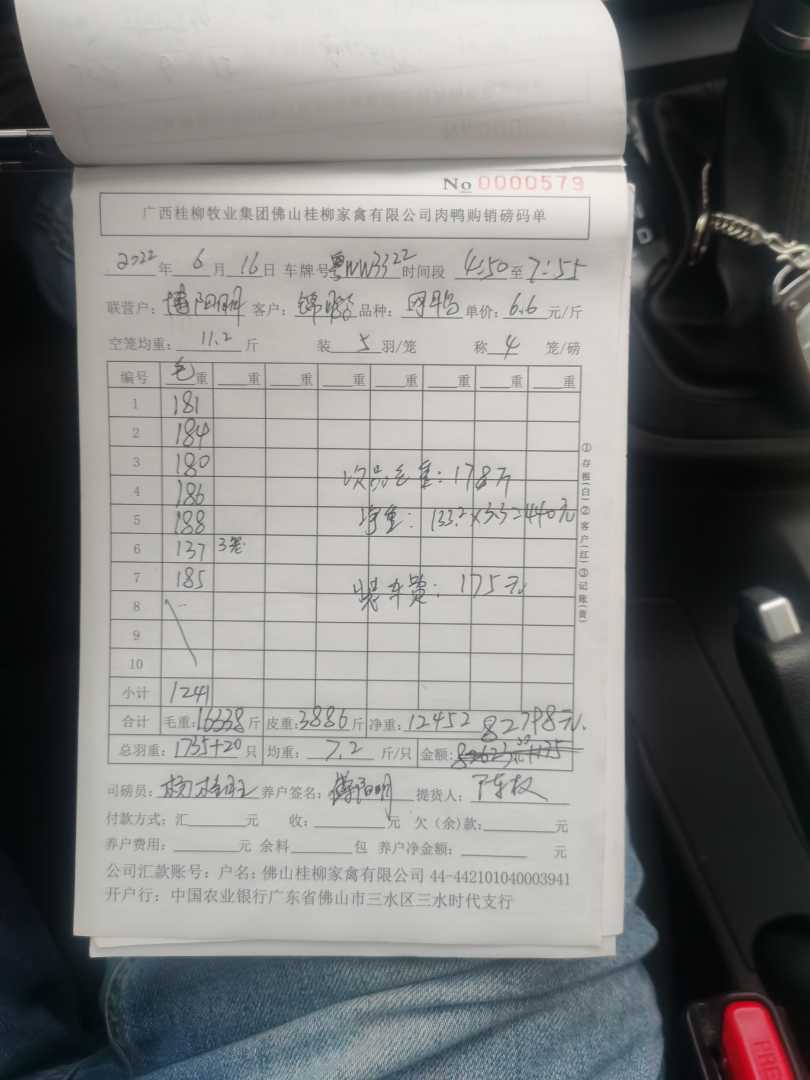 No 0000579
广西桂柳牧业集团佛山桂柳家禽有限公司肉鸭购销磅码单
2022年 6 月 16 日 车牌号 粤WW3322 时间段 4:50 至 7:55
联营户: 阳明 客户: 锦 品种: 单价: 6.6 元/斤
空笼均重: 11.2 斤 装 5 羽/笼 称 4 笼/磅
编号 毛重 重 重 重 重 重 重 重
1 181
2 184
3 180
4 186
5 188
6 137 3笼
7 185
8
9
10
次品毛重: 178斤
净重: 133.2×3.3=440元
装车费: 175元
小计 1241
合计 毛重: 16338 斤 皮重: 3886 斤 净重: 12452 82798元.
总羽重: 1735+20 只 均重: 7.2 斤/只 金额:
司磅员: 杨桂 养户签名: 阳明 提货人: 陈权
付款方式: 汇 元 收: 元 欠(余)款: 元
养户费用: 元 余料 包 养户净金额: 元
公司汇款账号: 户名: 佛山桂柳家禽有限公司 44-442101040003941
开户行: 中国农业银行广东省佛山市三水区三水时代支行
①存根(白)②客户(红)③记账(黄)